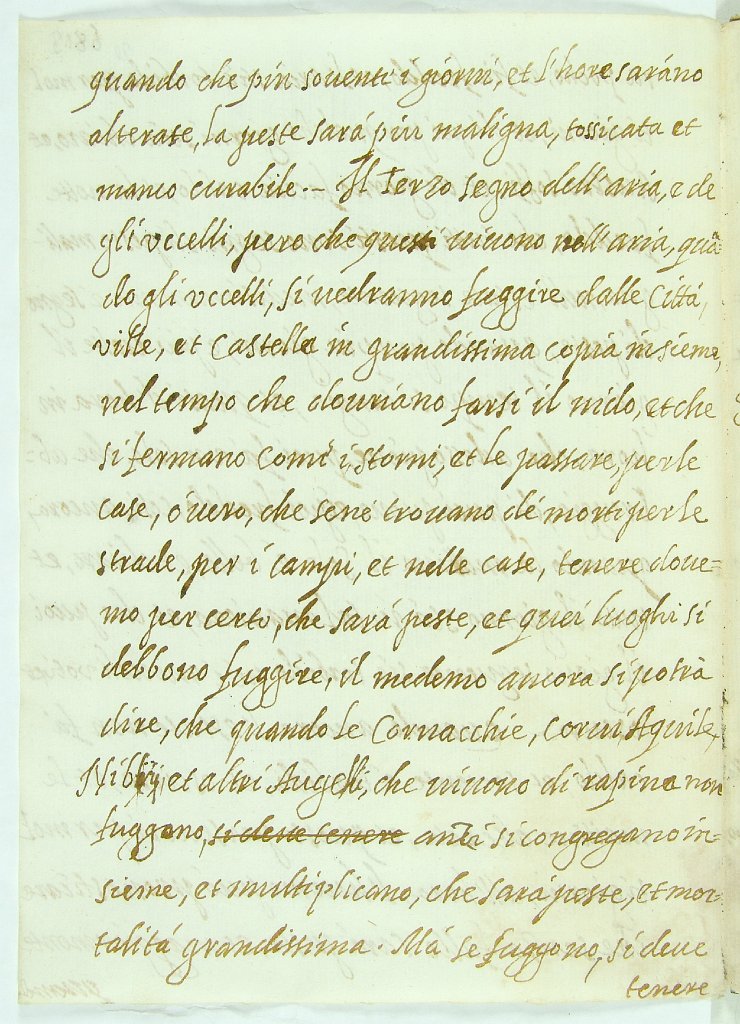 quando che più soventi i giorni, et l'hore saràno
alterate, la peste sarà più maligna, tossicata et
manco curabile -- Il Terzo segno dell'aria, e de
gli vccelli, pero che questi uiuono nell'aria, quã
do gli vccelli, si uedranno fuggire dalle Città,
ville, et Castella in grandissima copia insieme,
nel tempo che douriano farsi il nido, et che
si fermano Come i Storni, et le passare, per le
case, ò uero, che sene trouano dé morti per le
strade, per i campi, et nelle case, tenere doue=
mo per certo, che sarà peste, et quei luoghi si
debbono fuggire, il medemo ancora si potrà
dire, che quando le Cornacchie, Corui Aquile,
Nibij, et altri Augelli, che uiuono di rapina non
fuggono, si deue tenere anzi si congregano in=
sieme, et multiplicano, che sarà peste, et mor=
talità grandissima. Mà se fuggono, si deue
tenere